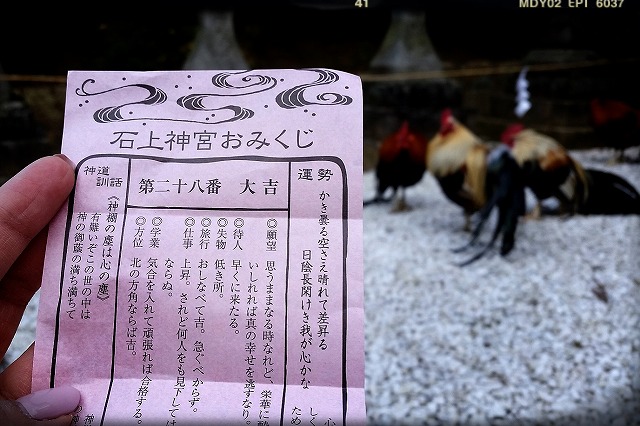 41
MDY02 EPT 6037
石上神宮おみくじ
第二十八番 大吉
運勢
かき曇る空さえ晴れて差昇る
日陰長閑けき我が心かな
◎願望 思うままなる時なれど、栄華に酔
いしれれば真の幸せを逃すなり。
◎待人 早くに来たる。
◎失物 低き所。
◎旅行 おしなべて吉。急ぐべからず。
◎仕事 上昇。されど何人をも見下しては
ならぬ。
◎学業 気合を入れて頑張れば合格する。
◎方位 北の方角ならば吉。
神道訓話
《神棚の塵は心の塵》
有難いぞこの世の中は
神の御蔭の満ち満ちて